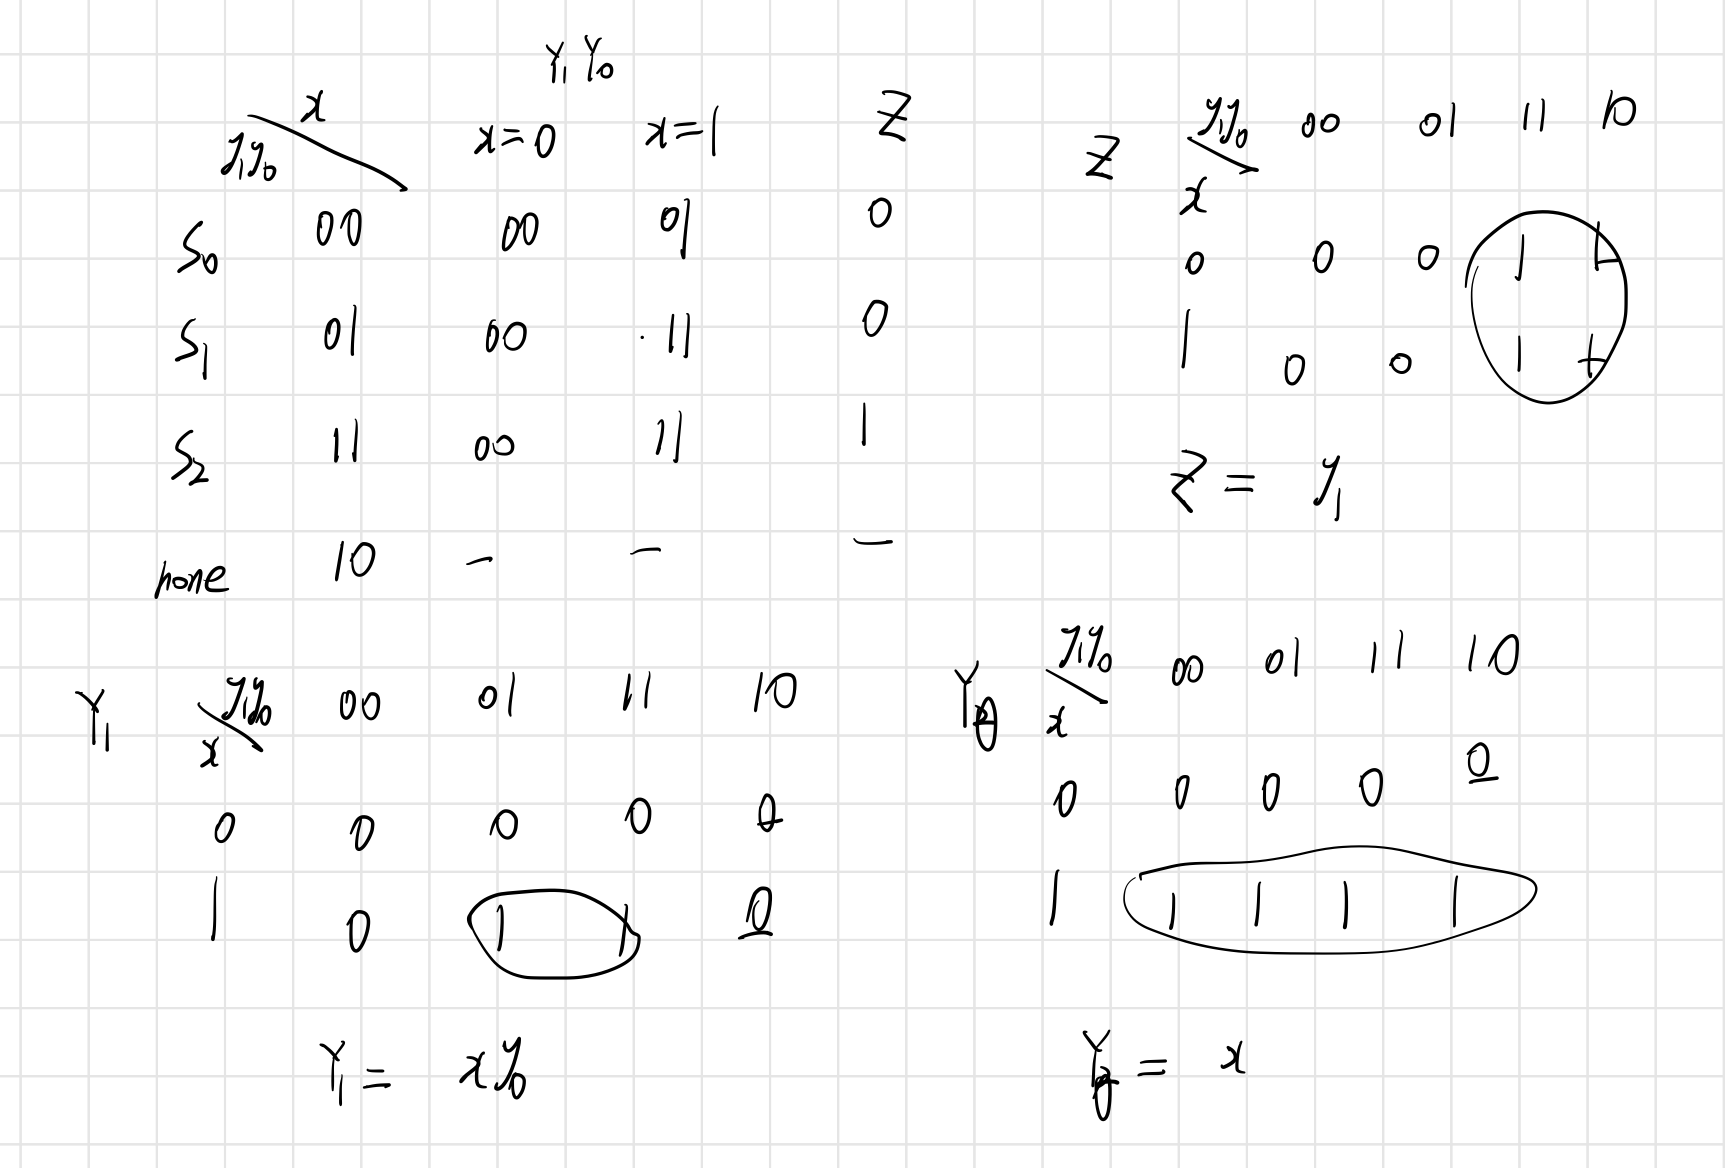 Y₁ Y₀
x
y₁y₀ x=0 x=1 Z
S₀ 00 00 01 0
S₁ 01 00 11 0
S₂ 11 00 11 1
none 10 - - -
Z y₁y₀ 00 01 11 10
x
0 0 0 1 1
1 0 0 1 1
Z = y₁
Y₁ y₁y₀ 00 01 11 10
x
0 0 0 0 0
1 0 1 1 0
Y₁ = xy₀
Y₀ y₁y₀ 00 01 11 10
x
0 0 0 0 0
1 1 1 1 1
Y₀ = x